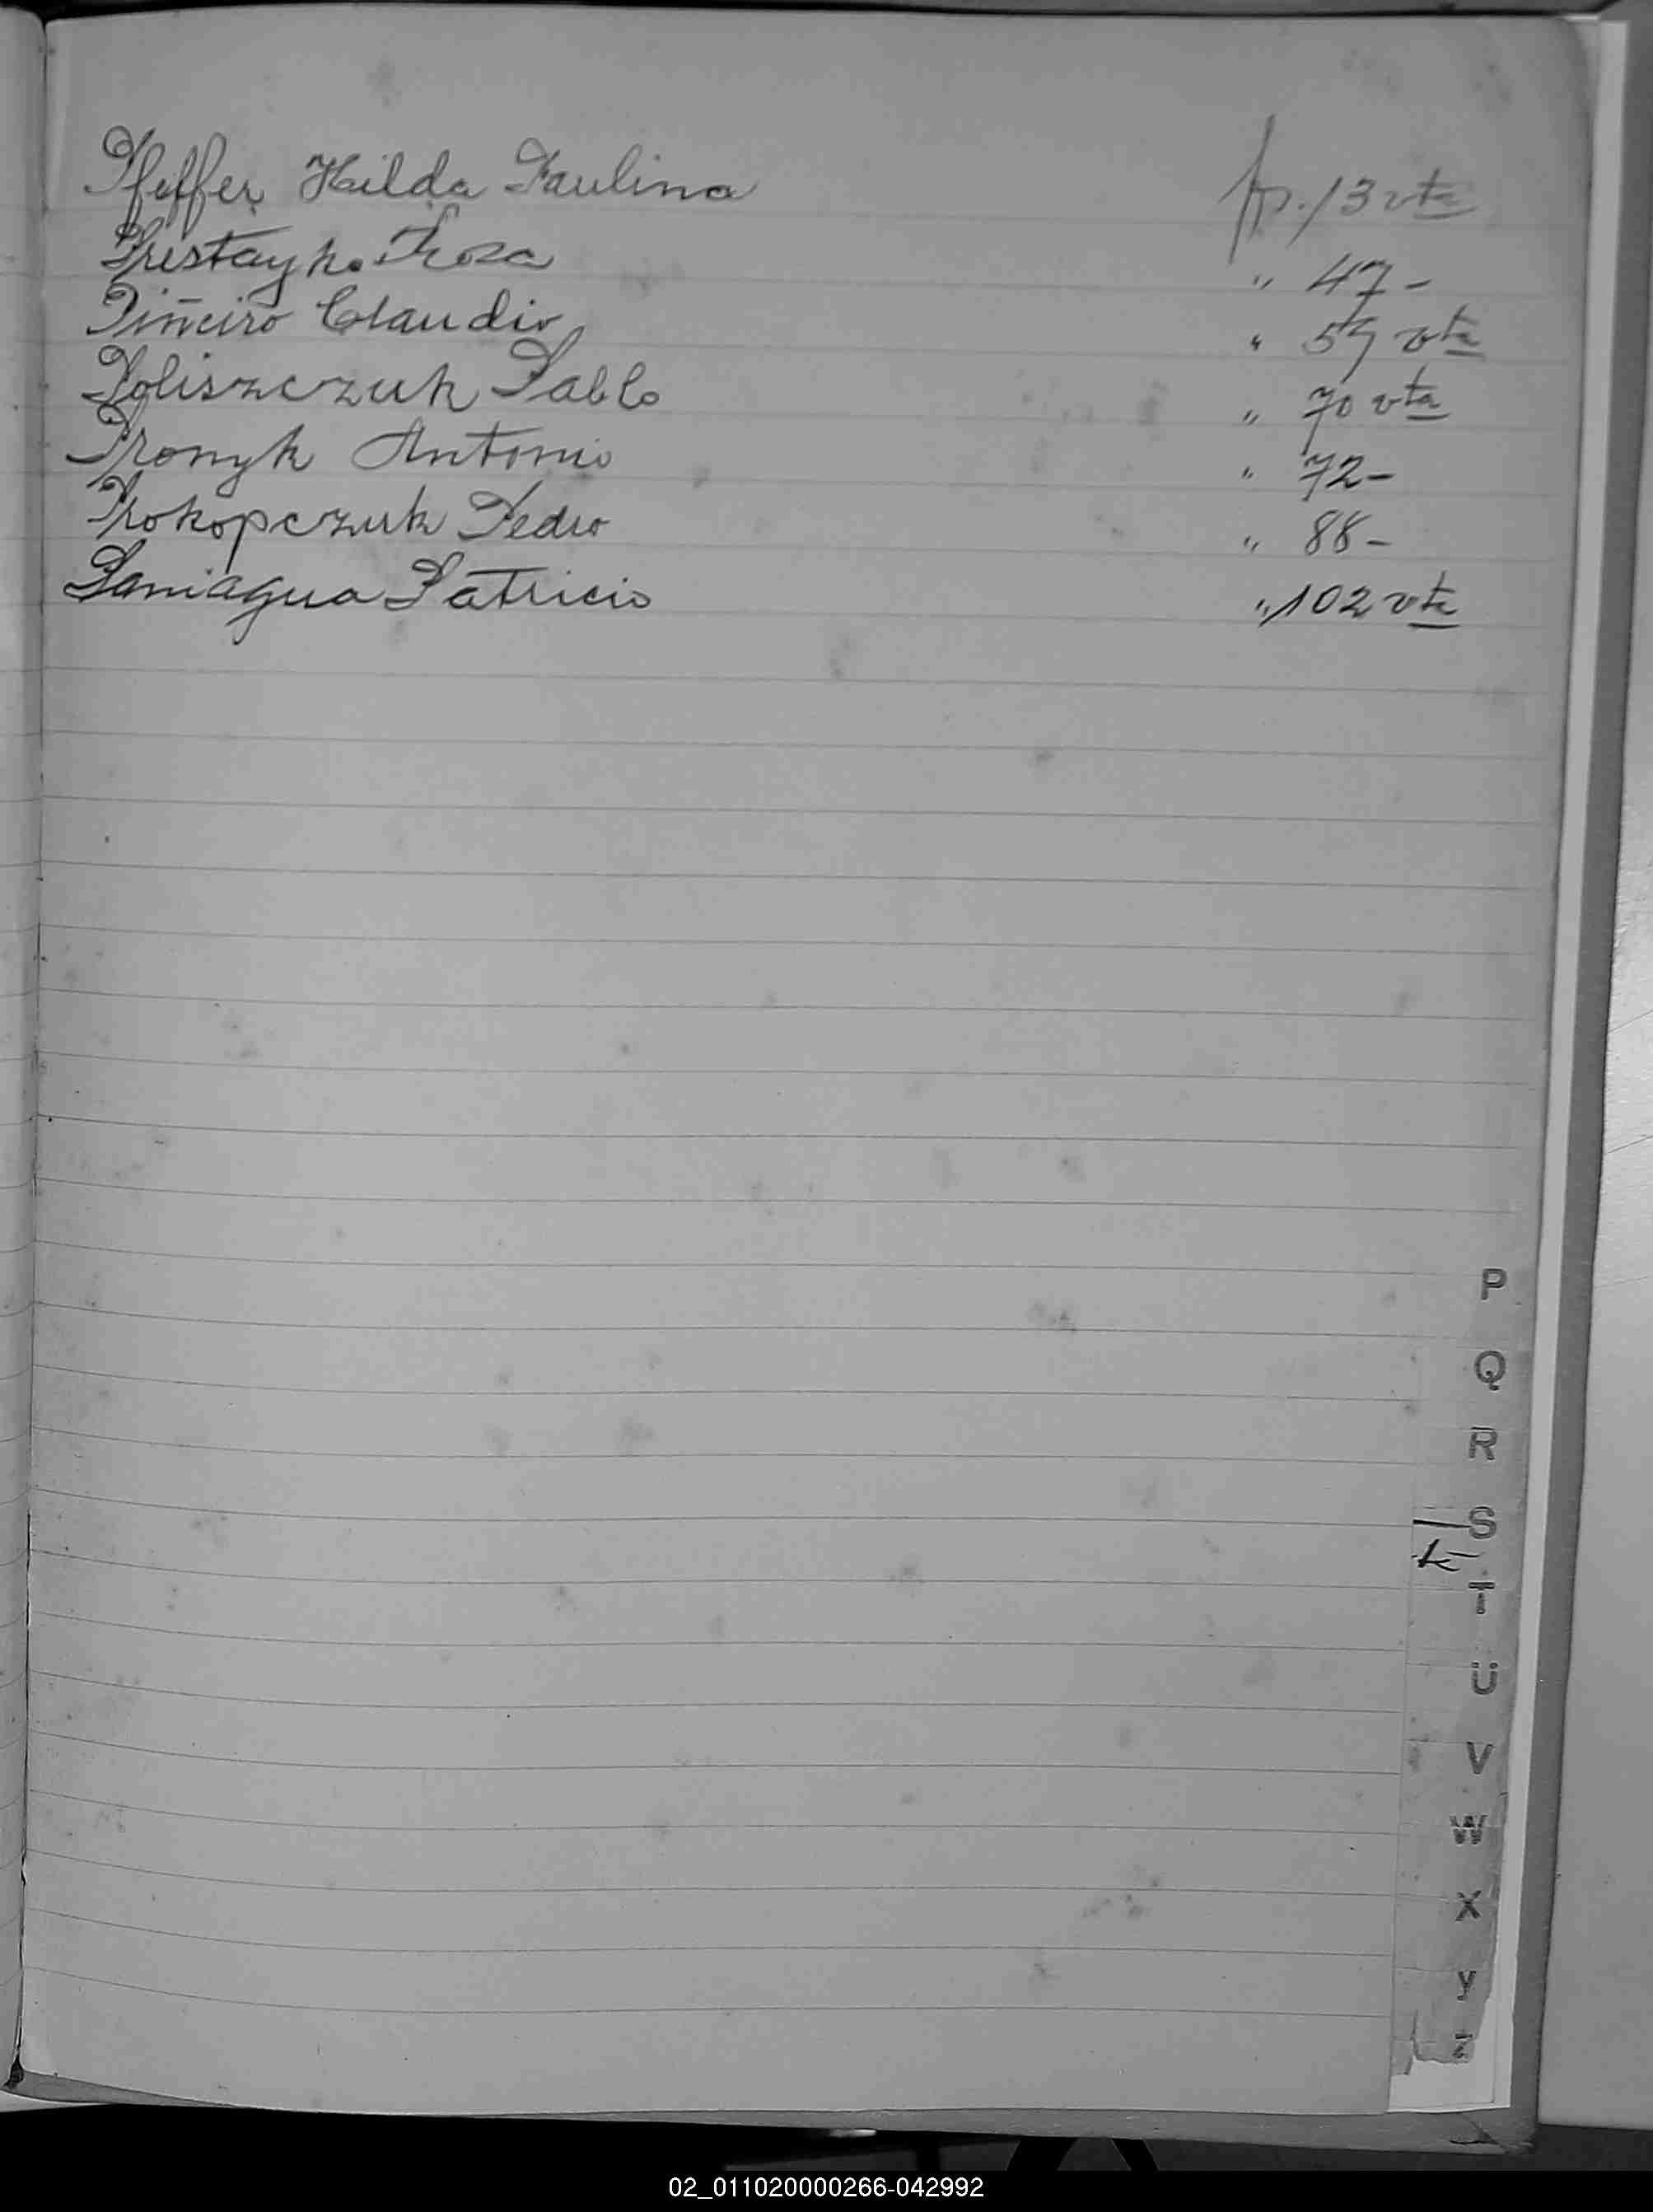 Pfeffer Hilda Paulina fs. 13 vta
Prestayko Rosa " 47-
Piñeiro Claudio " 59 vta
Poliszczuk Pablo " 70 vta
Pronyk Antonio " 72-
Prokopczuk Pedro " 88-
Paniagua Patricio " 102 vta
P
Q
R
S
T
U
V
W
X
Y
Z
02_011020000266-042992